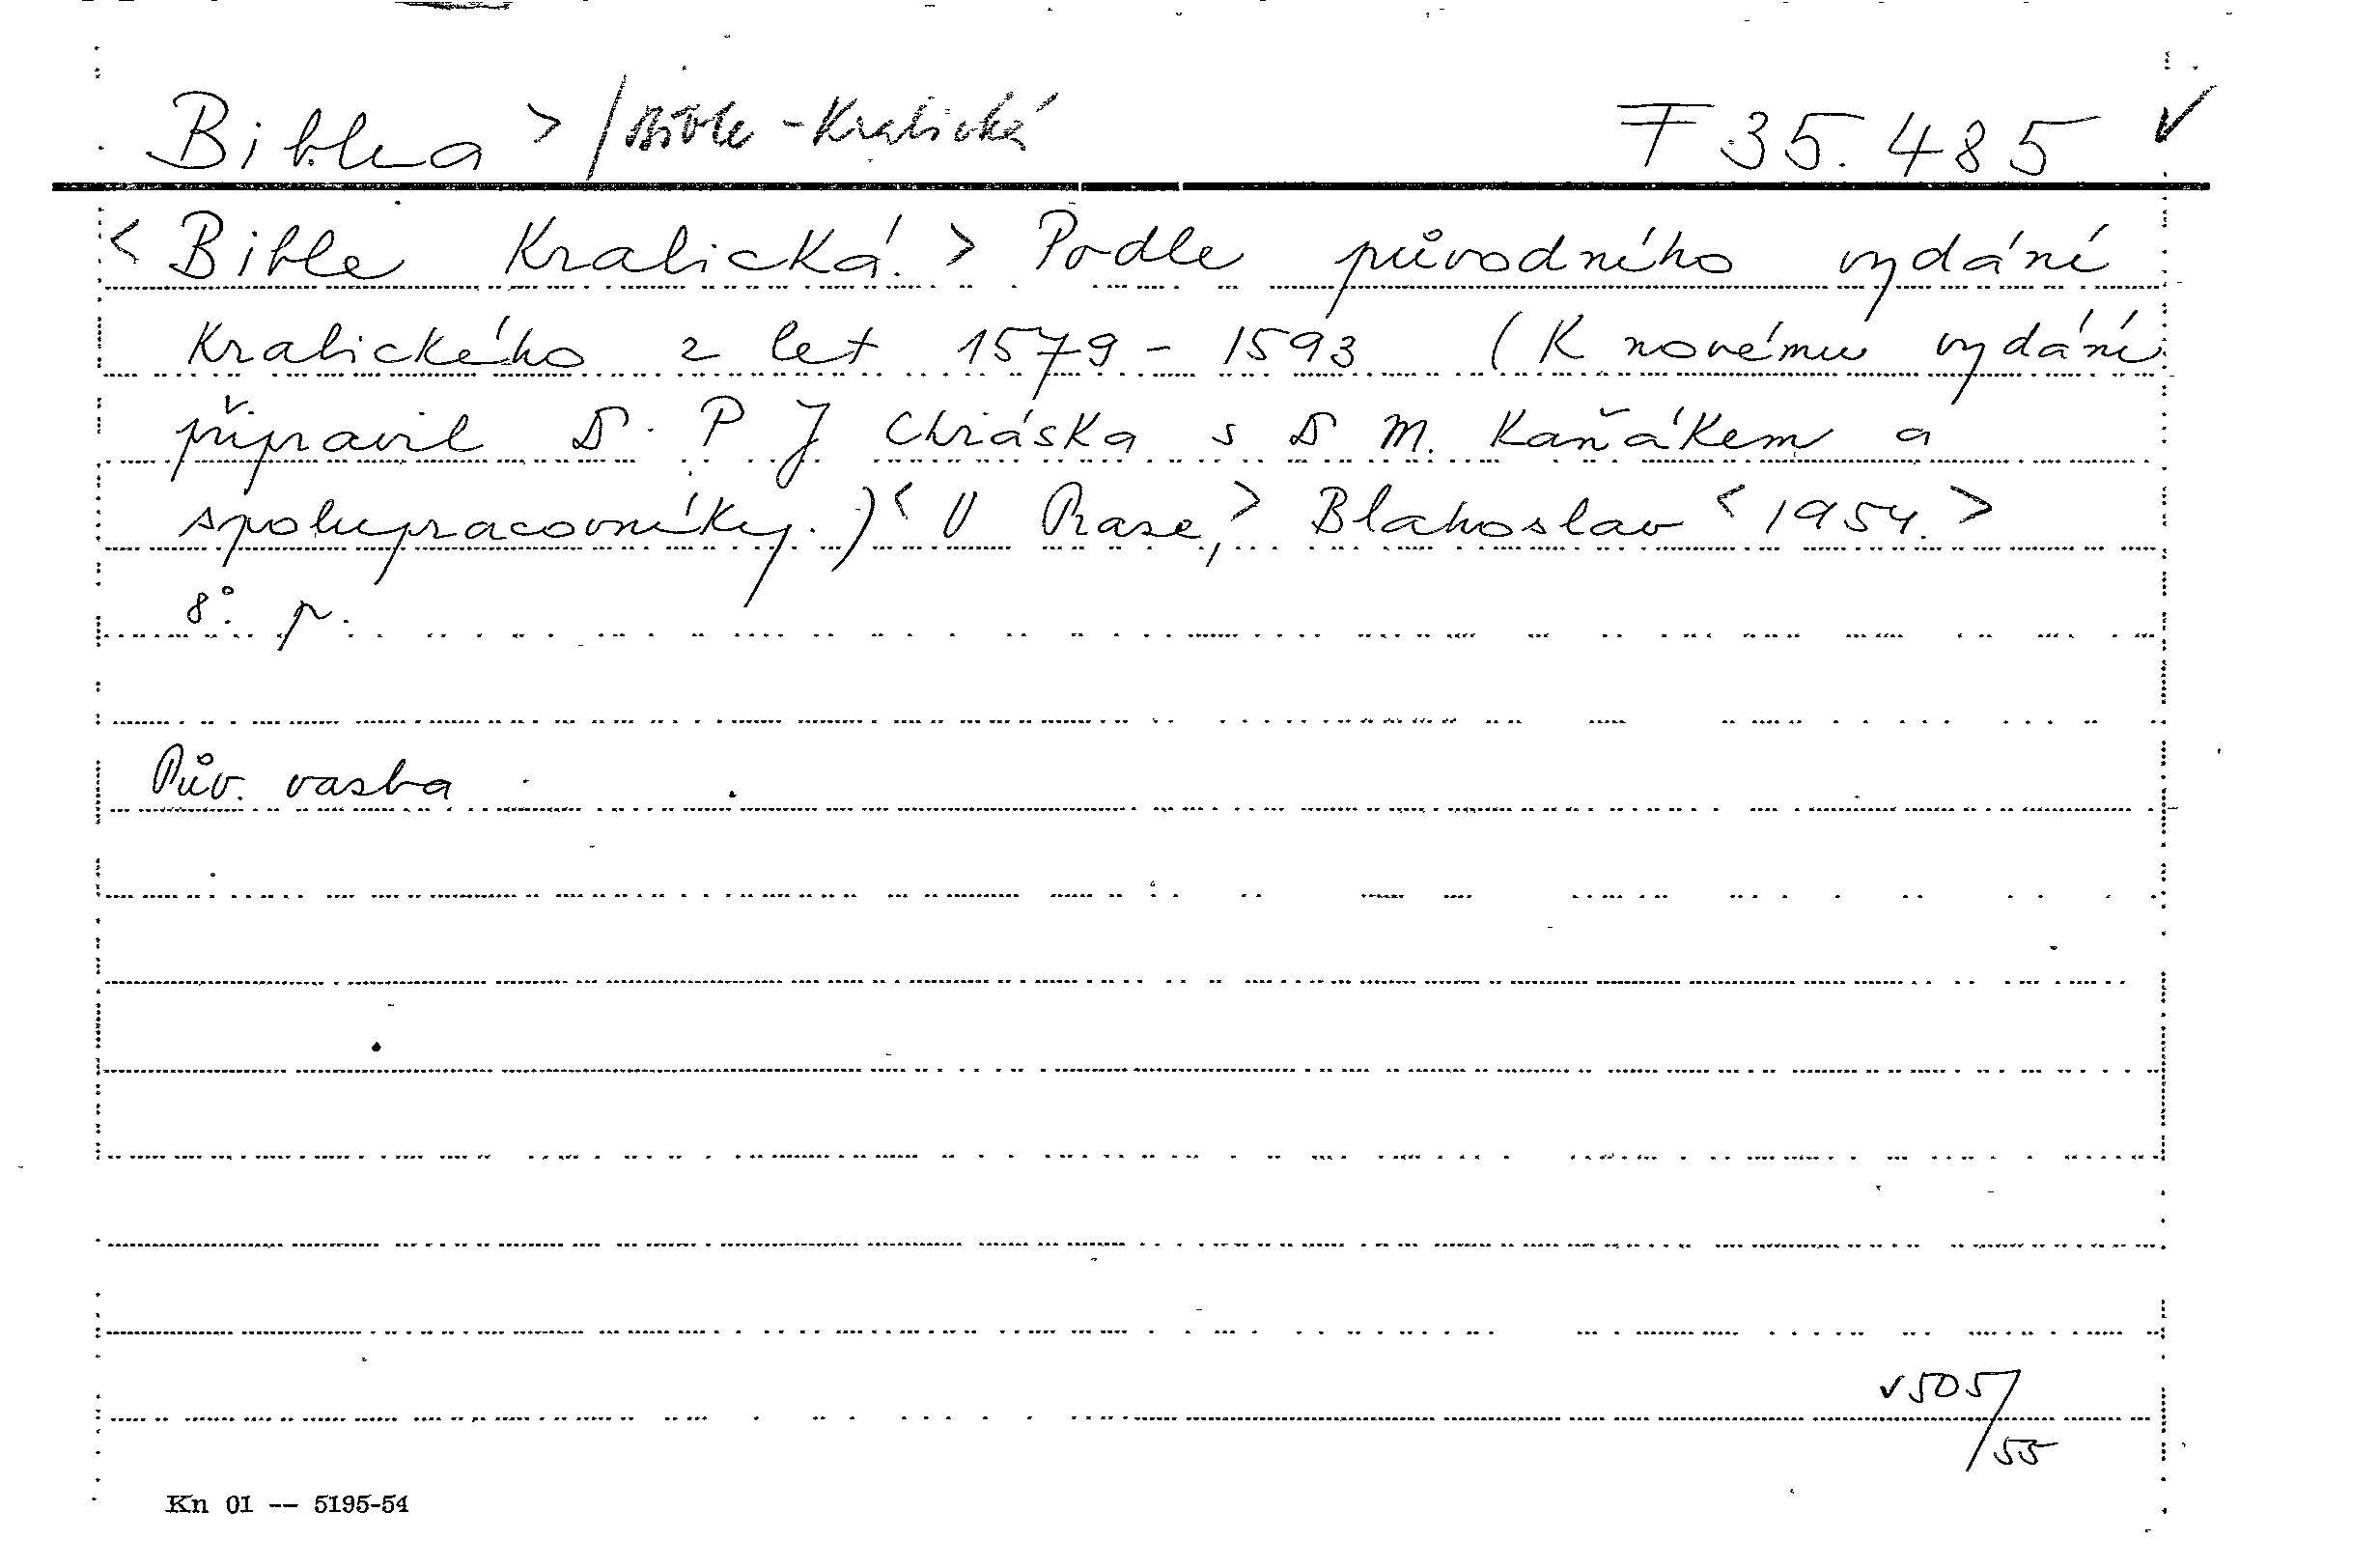 Biblea > / Bible - Kralická F 35.485 ✓
< Bible Kralická. > Podle původního vydání
Kralického z let 1579 - 1593 (K novému vydání
připravil D. P J Chráska s D M. Kaňákem a
spolupracovníky.) < V Praze, > Blahoslav < 1954. >
8°. p.
Pův. vazba
✓505/55
Kn 01 -- 5195-54